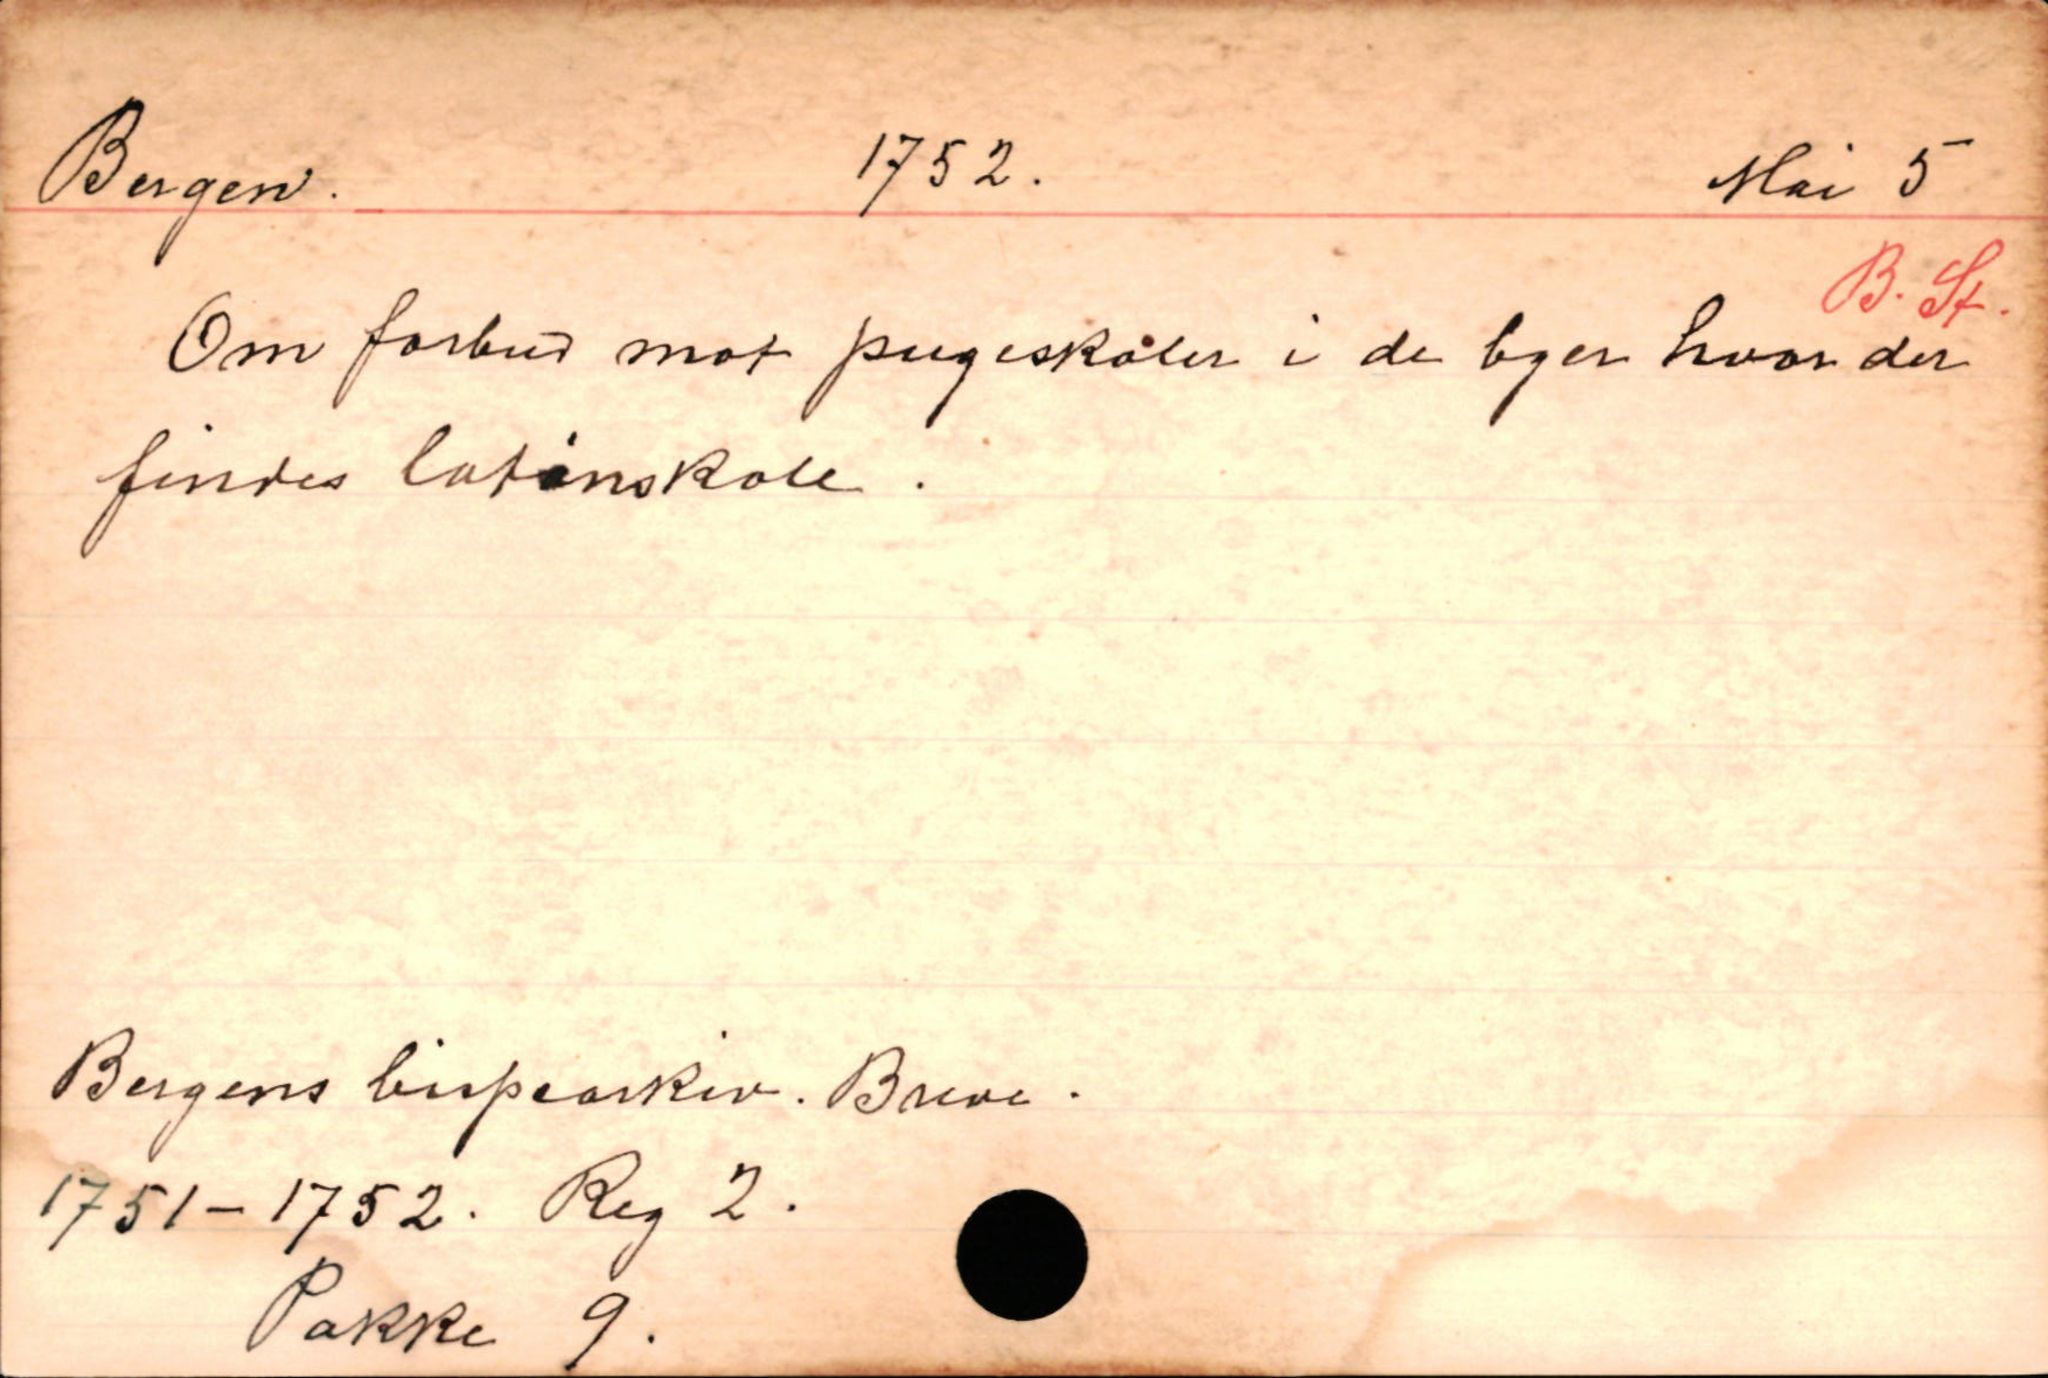 Bergen. 1752. Mai 5
B. St.
Om forbud mot pugeskoler i de byer hvor der
findes latinskole.
Bergens bispearkiv. Breve.
1751-1752. Reg 2.
Pakke 9.